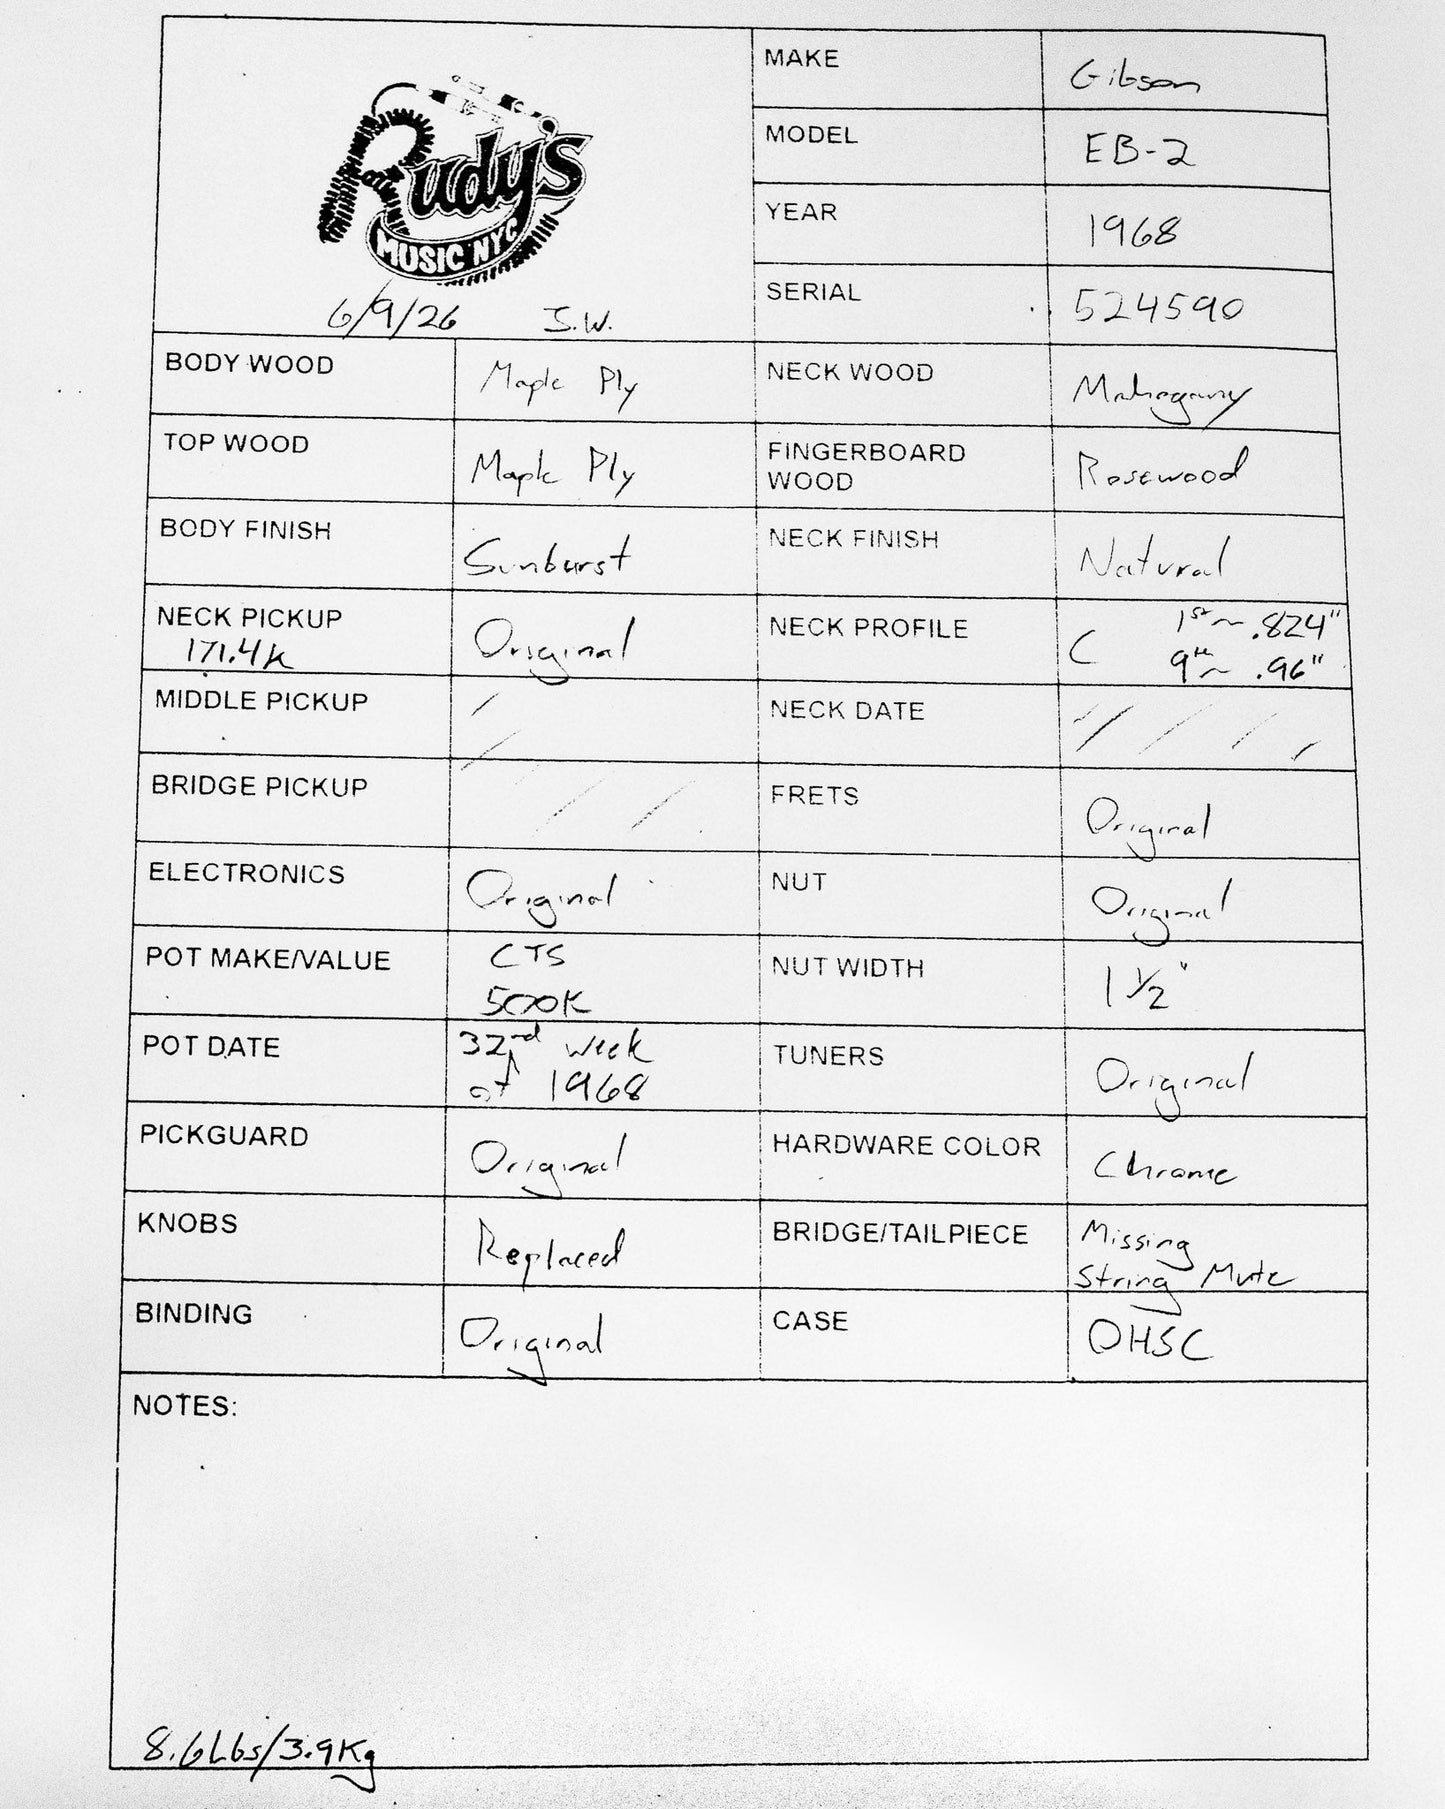 Rudy's
MUSIC NYC
6/9/26 J.W.
MAKE Gibson
MODEL EB-2
YEAR 1968
SERIAL 524590
BODY WOOD Maple Ply NECK WOOD Mahogany
TOP WOOD Maple Ply FINGERBOARD WOOD Rosewood
BODY FINISH Sunburst NECK FINISH Natural
NECK PICKUP 171.4K Original NECK PROFILE C 1st ~ .824"
9th ~ .96"
MIDDLE PICKUP NECK DATE
BRIDGE PICKUP FRETS Original
ELECTRONICS Original NUT Original
POT MAKE/VALUE CTS
500K NUT WIDTH 1 1/2"
POT DATE 32nd week
of 1968 TUNERS Original
PICKGUARD Original HARDWARE COLOR Chrome
KNOBS Replaced BRIDGE/TAILPIECE Missing
String Mute
BINDING Original CASE OHSC
NOTES:
8.6Lbs/3.9Kg